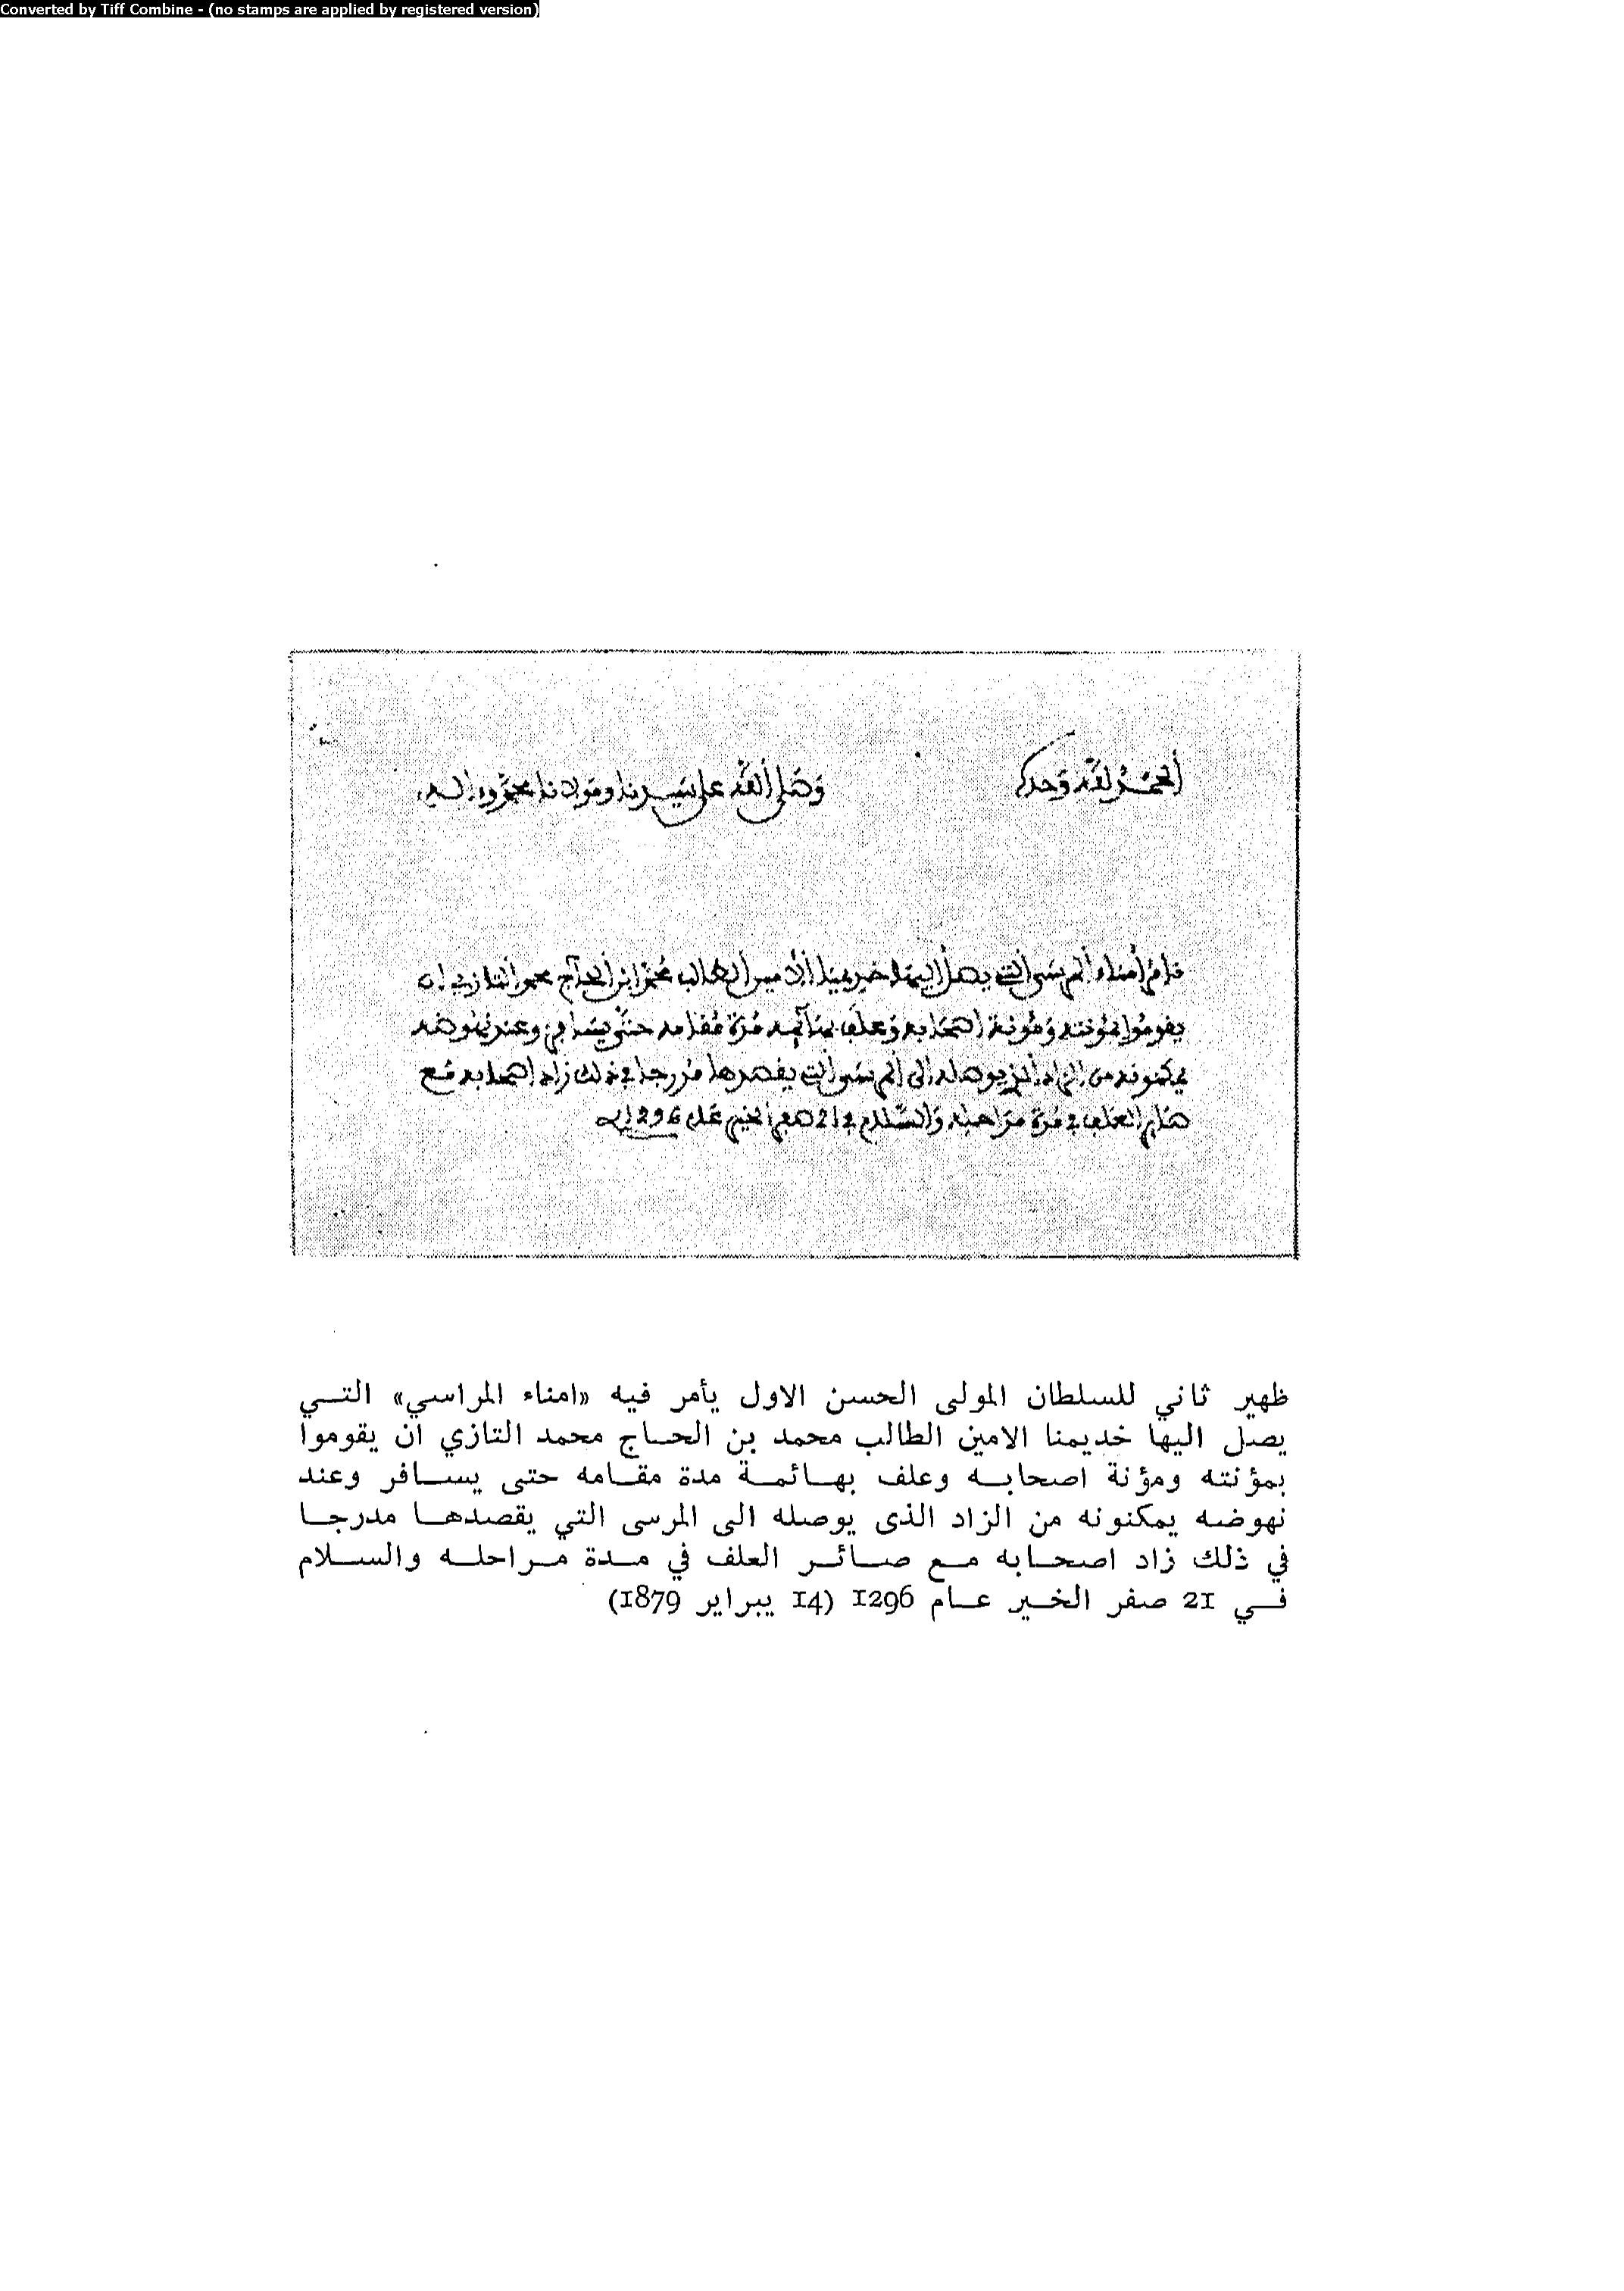 Converted by Tiff Combine - (no stamps are applied by registered version)
الحمد لله وحده
وصلى الله على سيدنا ومولانا محمد وءاله
نامر أمناء المرسى التي يصل إليها خديمنا الأمين الطالب محمد ابن الحاج محمد التازي ان
يقوموا بمؤنته ومؤنة اصحابه وعلف بهآئمه مدة مقامه حتى يسافر وعند نهوضه
يمكنونه من الزاد الذي يوصله إلى المرسى التي يقصدها مدرجا في ذلك زاد اصحابه مع
صائر العلف في مدة مراحله والسلام في 21 صفر الخير عام 1296
ظهير ثاني للسلطان المولى الحسن الاول يأمر فيه «امناء المراسي» التي
يصل اليها خديمنا الامين الطالب محمد بن الحاج محمد التازي ان يقوموا
بمؤنته ومؤنة اصحابه وعلف بهائمة مدة مقامه حتى يسافر وعند
نهوضه يمكنونه من الزاد الذى يوصله الى المرسى التي يقصدها مدرجا
في ذلك زاد اصحابه مع صائر العلف في مدة مراحله والسلام
في 21 صفر الخير عام 1296 (14 يبراير 1879)